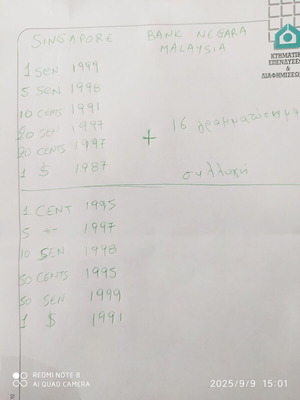 SINGAPORE BANK NEGARA
MALAYSIA
ΚΤΗΜΑΤΙΚ
ΕΠΕΝΔΥΣΕΙ
&
ΔΙΑΦΗΜΙΣΕΩ
1 SEN 1999
5 SEN 1998
10 CENTS 1991
20 SEN 1997
20 CENTS 1997
1 $ 1987
+ 16 γραμματόσημα
συλλογή
1 CENT 1995
5 -"- 1997
10 SEN 1998
50 CENTS 1995
50 SEN 1999
1 $ 1991
REDMI NOTE 8
AI QUAD CAMERA
2025/9/9 15:01